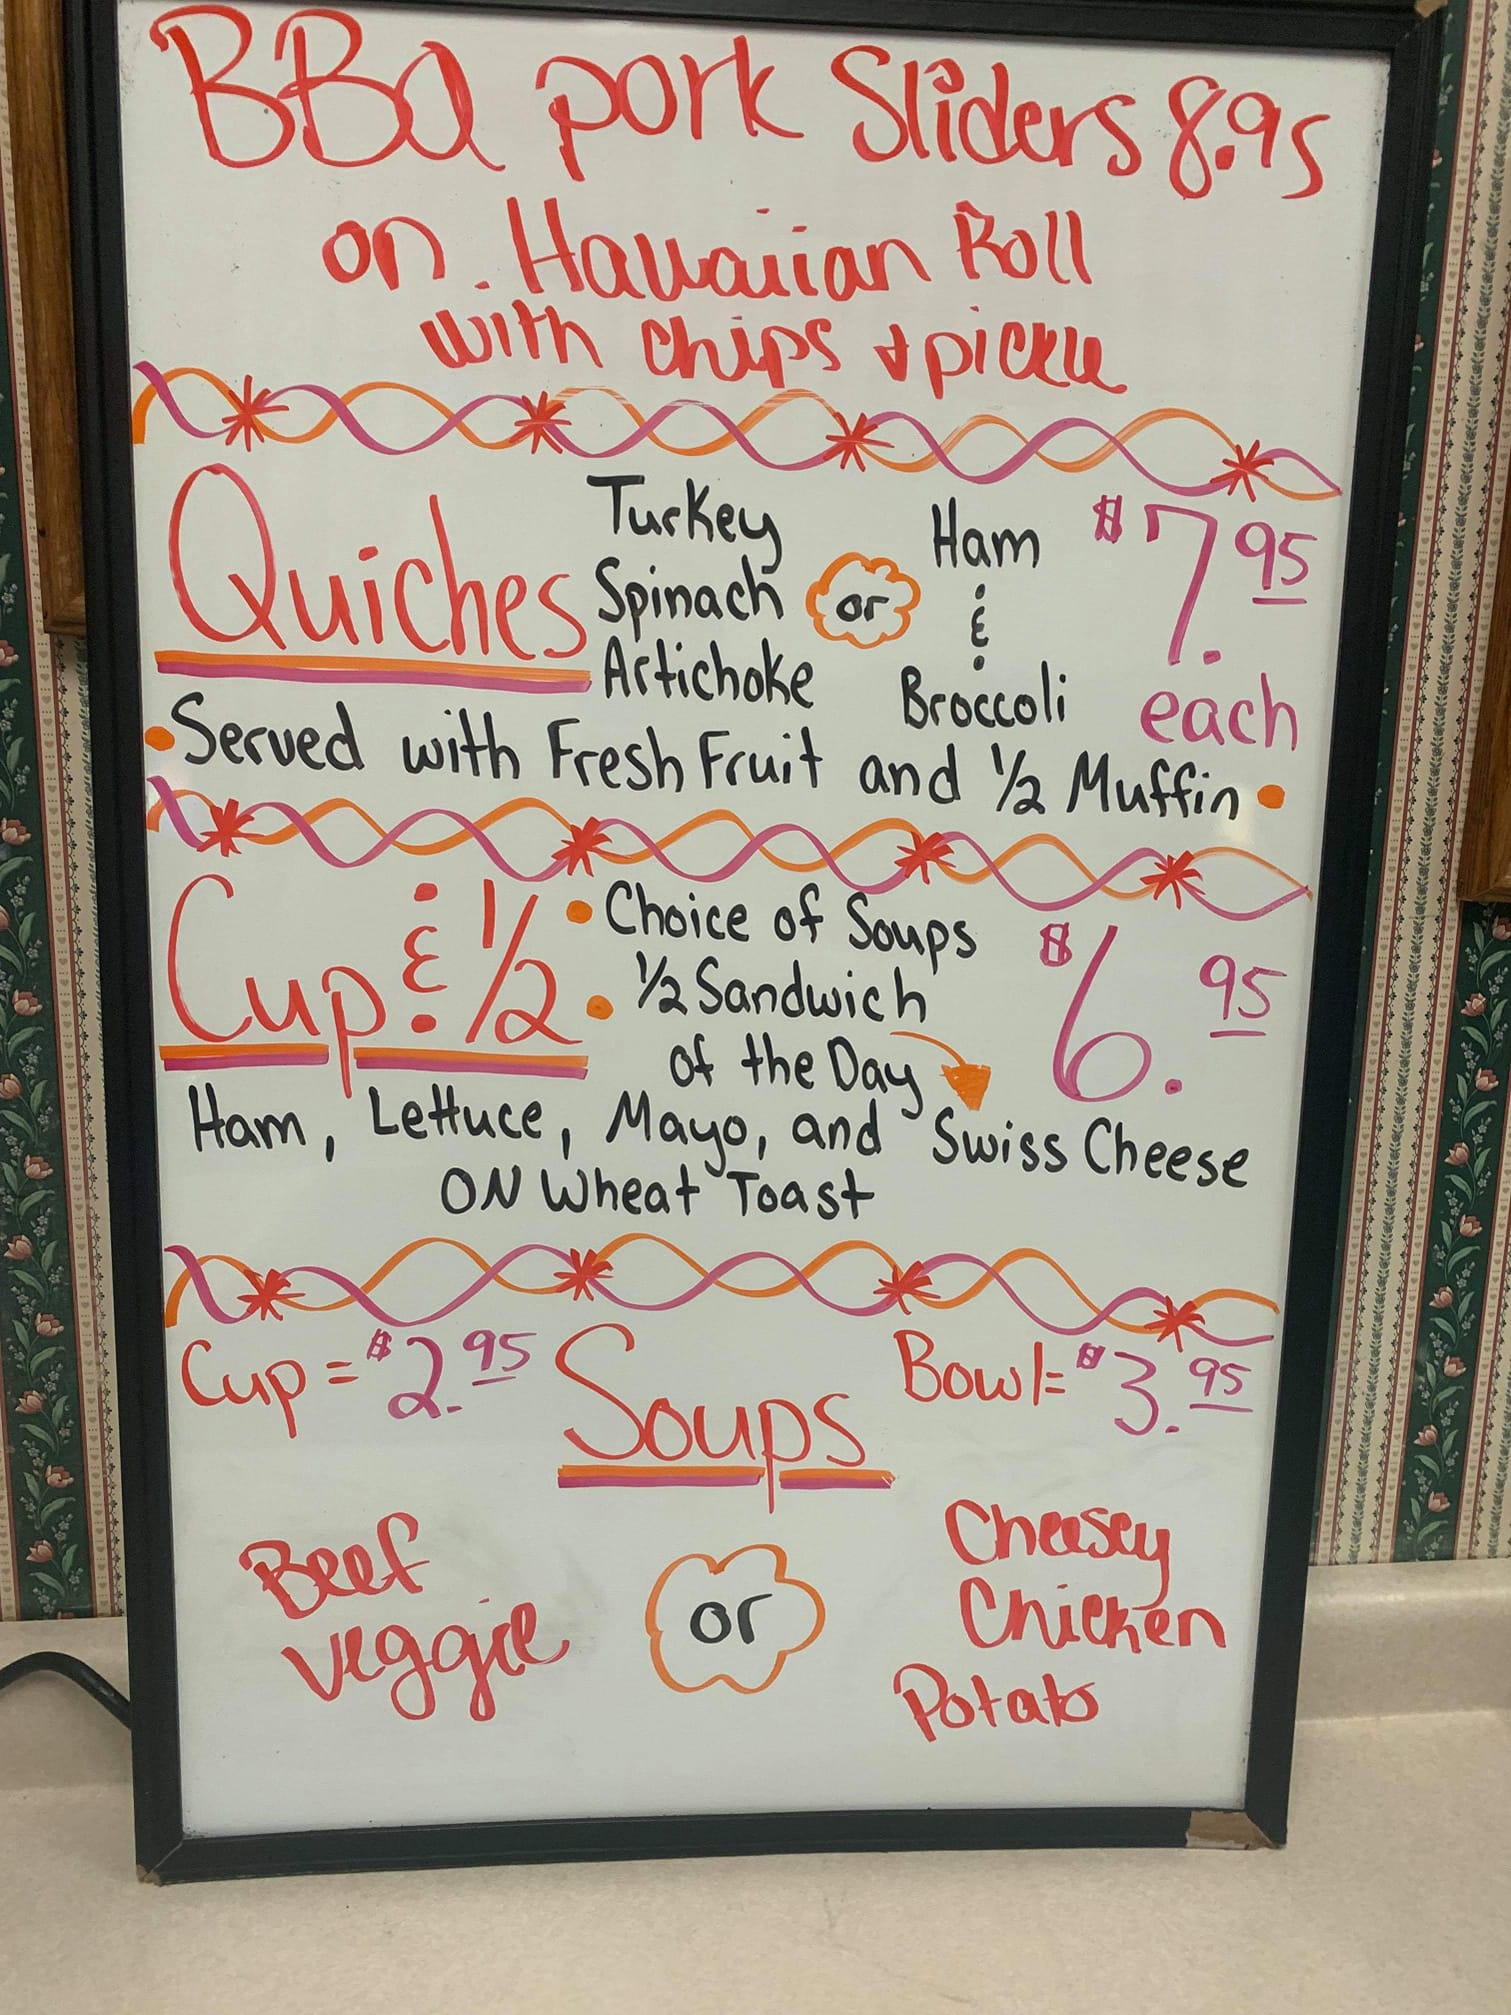 BBQ pork Sliders 8.95
on Hawaiian Roll
with chips & pickle
Quiches
Turkey
Spinach
Artichoke
or
Ham
&
Broccoli
$7.95
each
• Served with Fresh Fruit and 1/2 Muffin •
Cup & 1/2
• Choice of Soups
• 1/2 Sandwich
of the Day
$6.95
Ham, Lettuce, Mayo, and Swiss Cheese
ON Wheat Toast
Cup = $2.95
Soups
Bowl = $3.95
Beef
veggie
or
Cheesey
Chicken
Potato